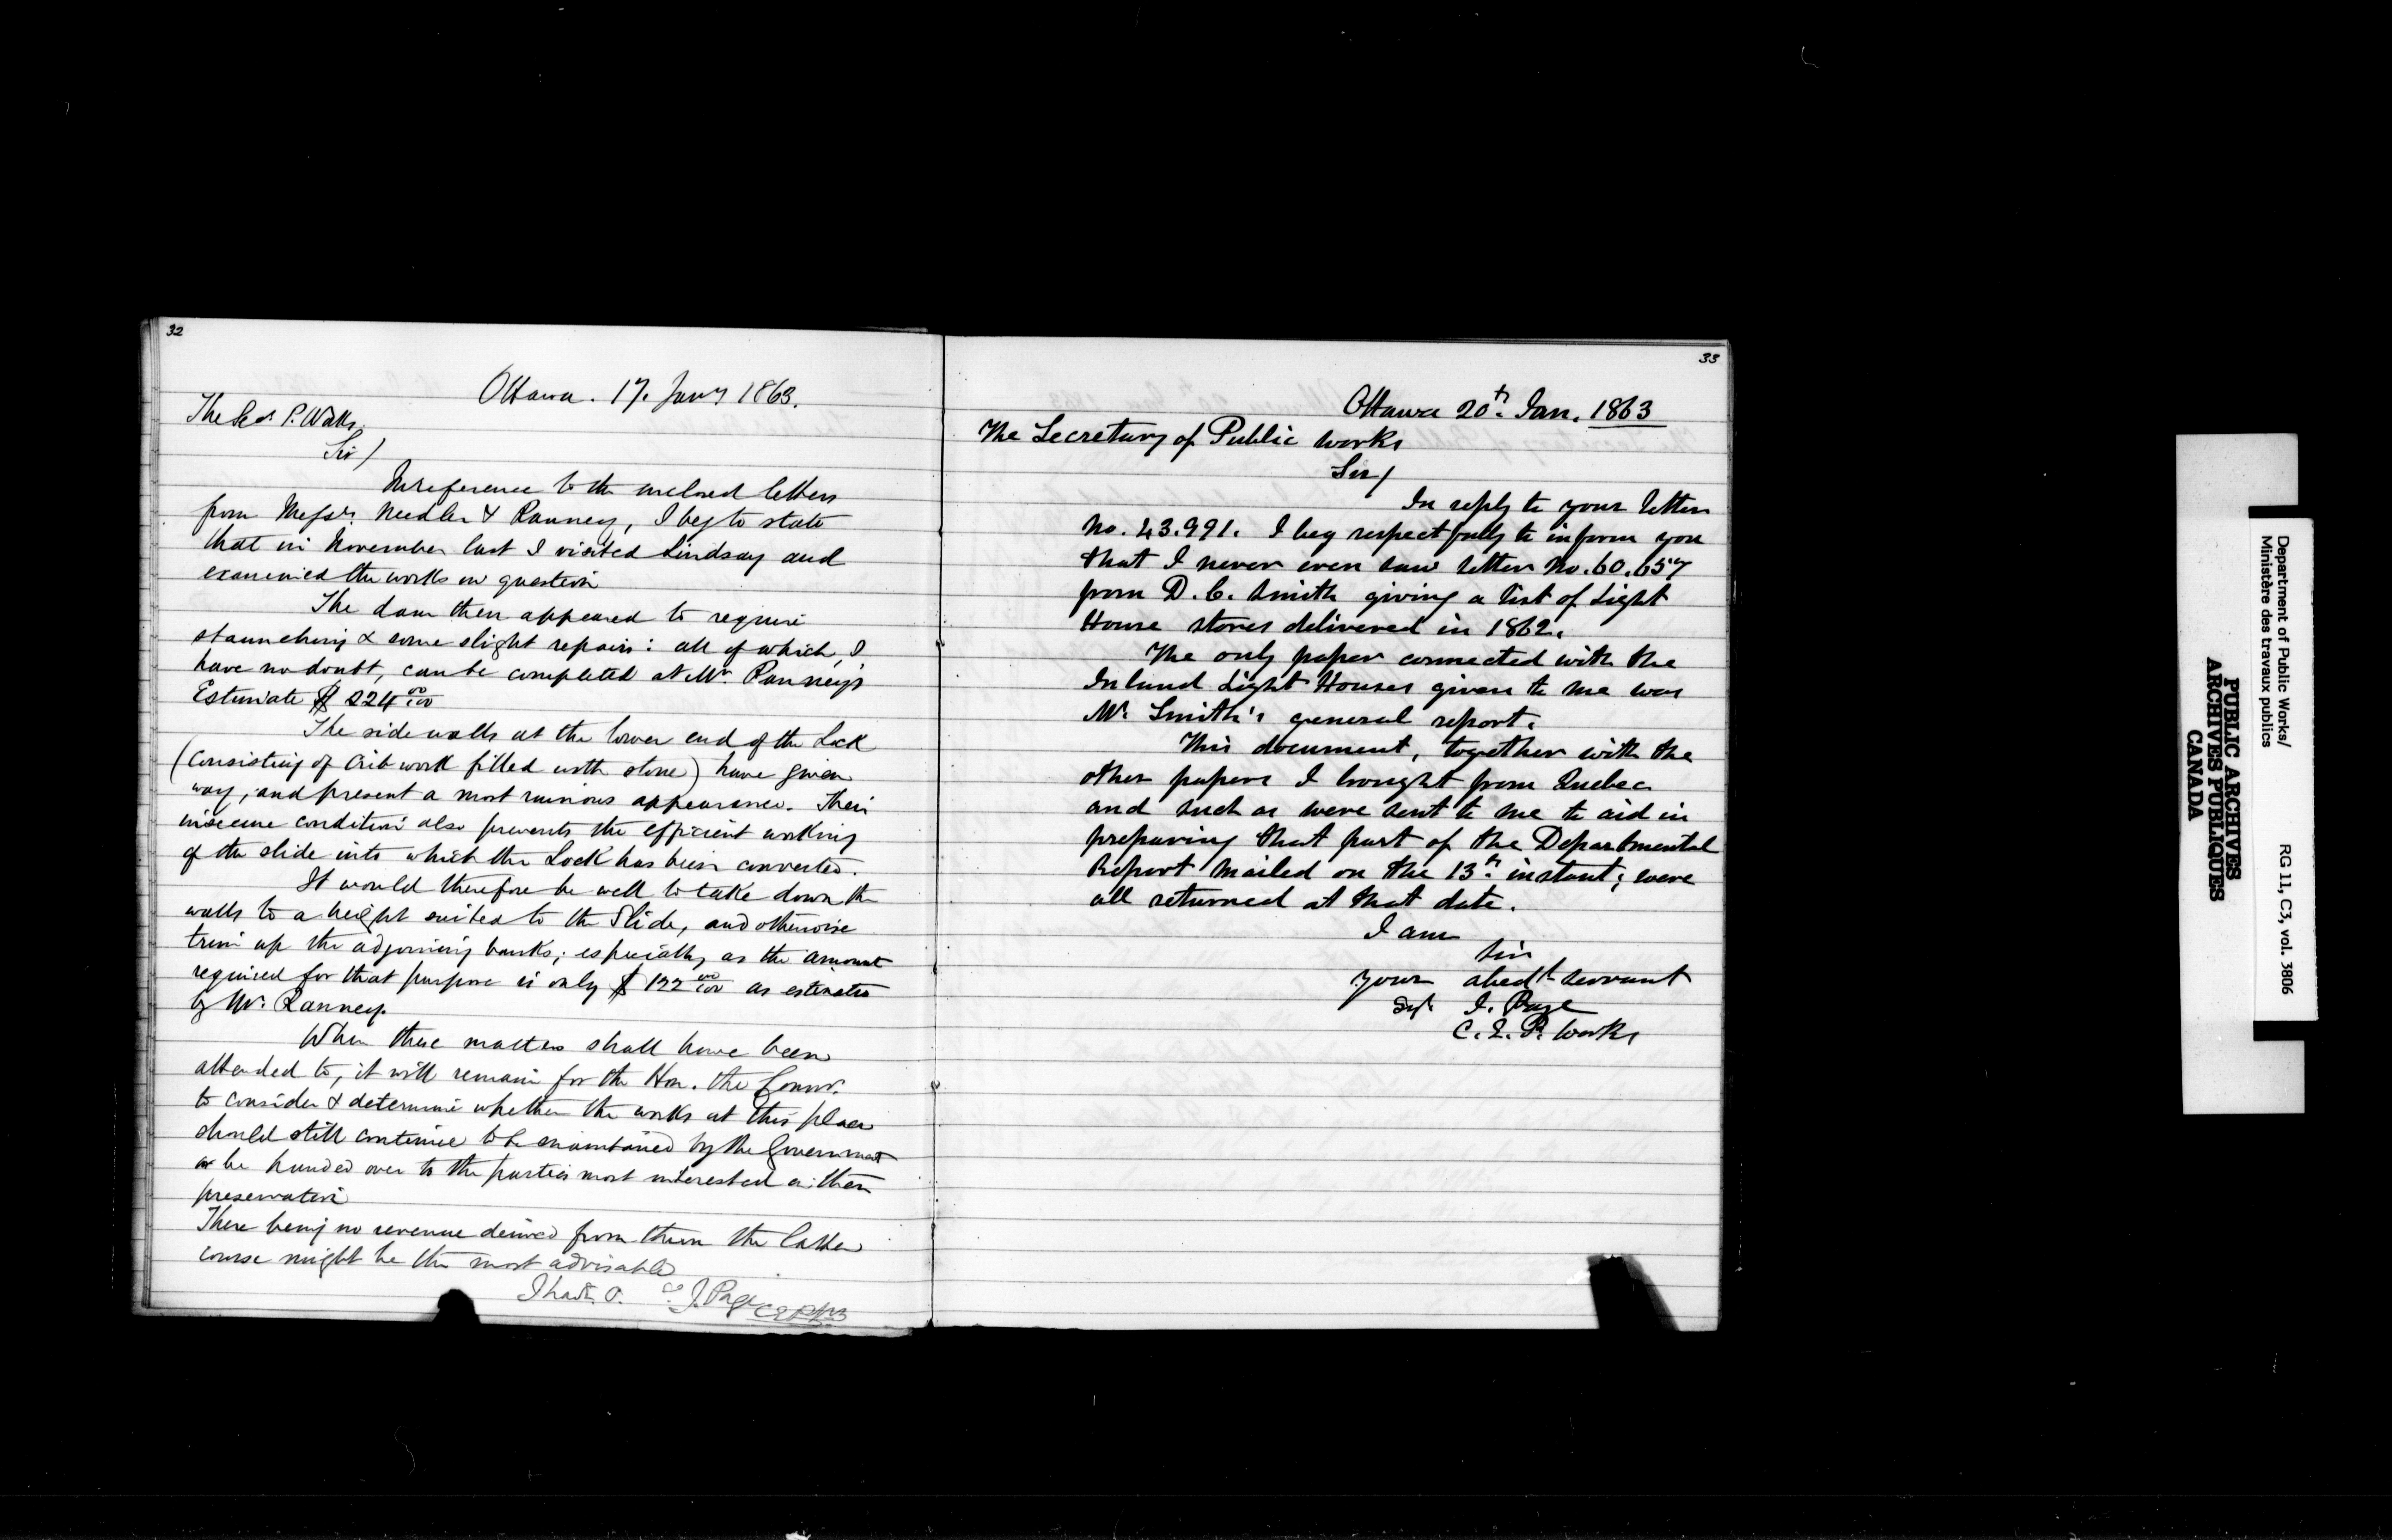 32
Ottawa. 17. Jany 1863.
The Secy P. Works
Sir/
In reference to the inclosed letters
from Messrs. Needler & Ranney, I beg to state
that in November last I visited Lindsay and
examined the works in question
The dam then appeared to require
staunching & some slight repairs: all of which, I
have no doubt, can be completed at Mr. Ranney's
Estimate $ 224 00/100
The side walls at the lower end of the Lock
(Consisting of Crib work filled with stone) have given
way, and present a most ruinous appearance. Their
insecure condition also prevents the efficient working
of the slide into which the Lock has been converted.
It would therefore be well to take down the
walls to a height suited to the Slide, and otherwise
trim up the adjoining banks; especially as the amount
required for that purpose is only $ 122 00/100 as estimated
by Mr. Ranney.
When these matters shall have been
attended to, it will remain for the Hon. the Commr.
to consider & determine whether the works at this place
should still continue to be maintained by the Government
or be handed over to the parties most interested in their
preservation
There being no revenue derived from them the latter
course might be the most advisable
J. Page
33
Ottawa 20th. Jan. 1863
The Secretary of Public Works
Sir/
In reply to your letter
No. 43.991. I beg respectfully to inform you
that I never even saw letter No. 60.657
from D. C. Smith giving a list of Light
House stores delivered in 1862.
The only paper connected with the
Inland Light Houses given to me was
Mr. Smith's general report.
This document, together with the
other papers I brought from Quebec
and such as were sent to me to aid in
preparing that part of the Departmental
Report mailed on the 13th. instant; were
all returned at that date.
I am
Sir
Your obedt servant
Sgd. J. Page
C. E. P. Works
Department of Public Works/
Ministère des travaux publics
RG 11, C3, vol. 3806
PUBLIC ARCHIVES
ARCHIVES PUBLIQUES
CANADA